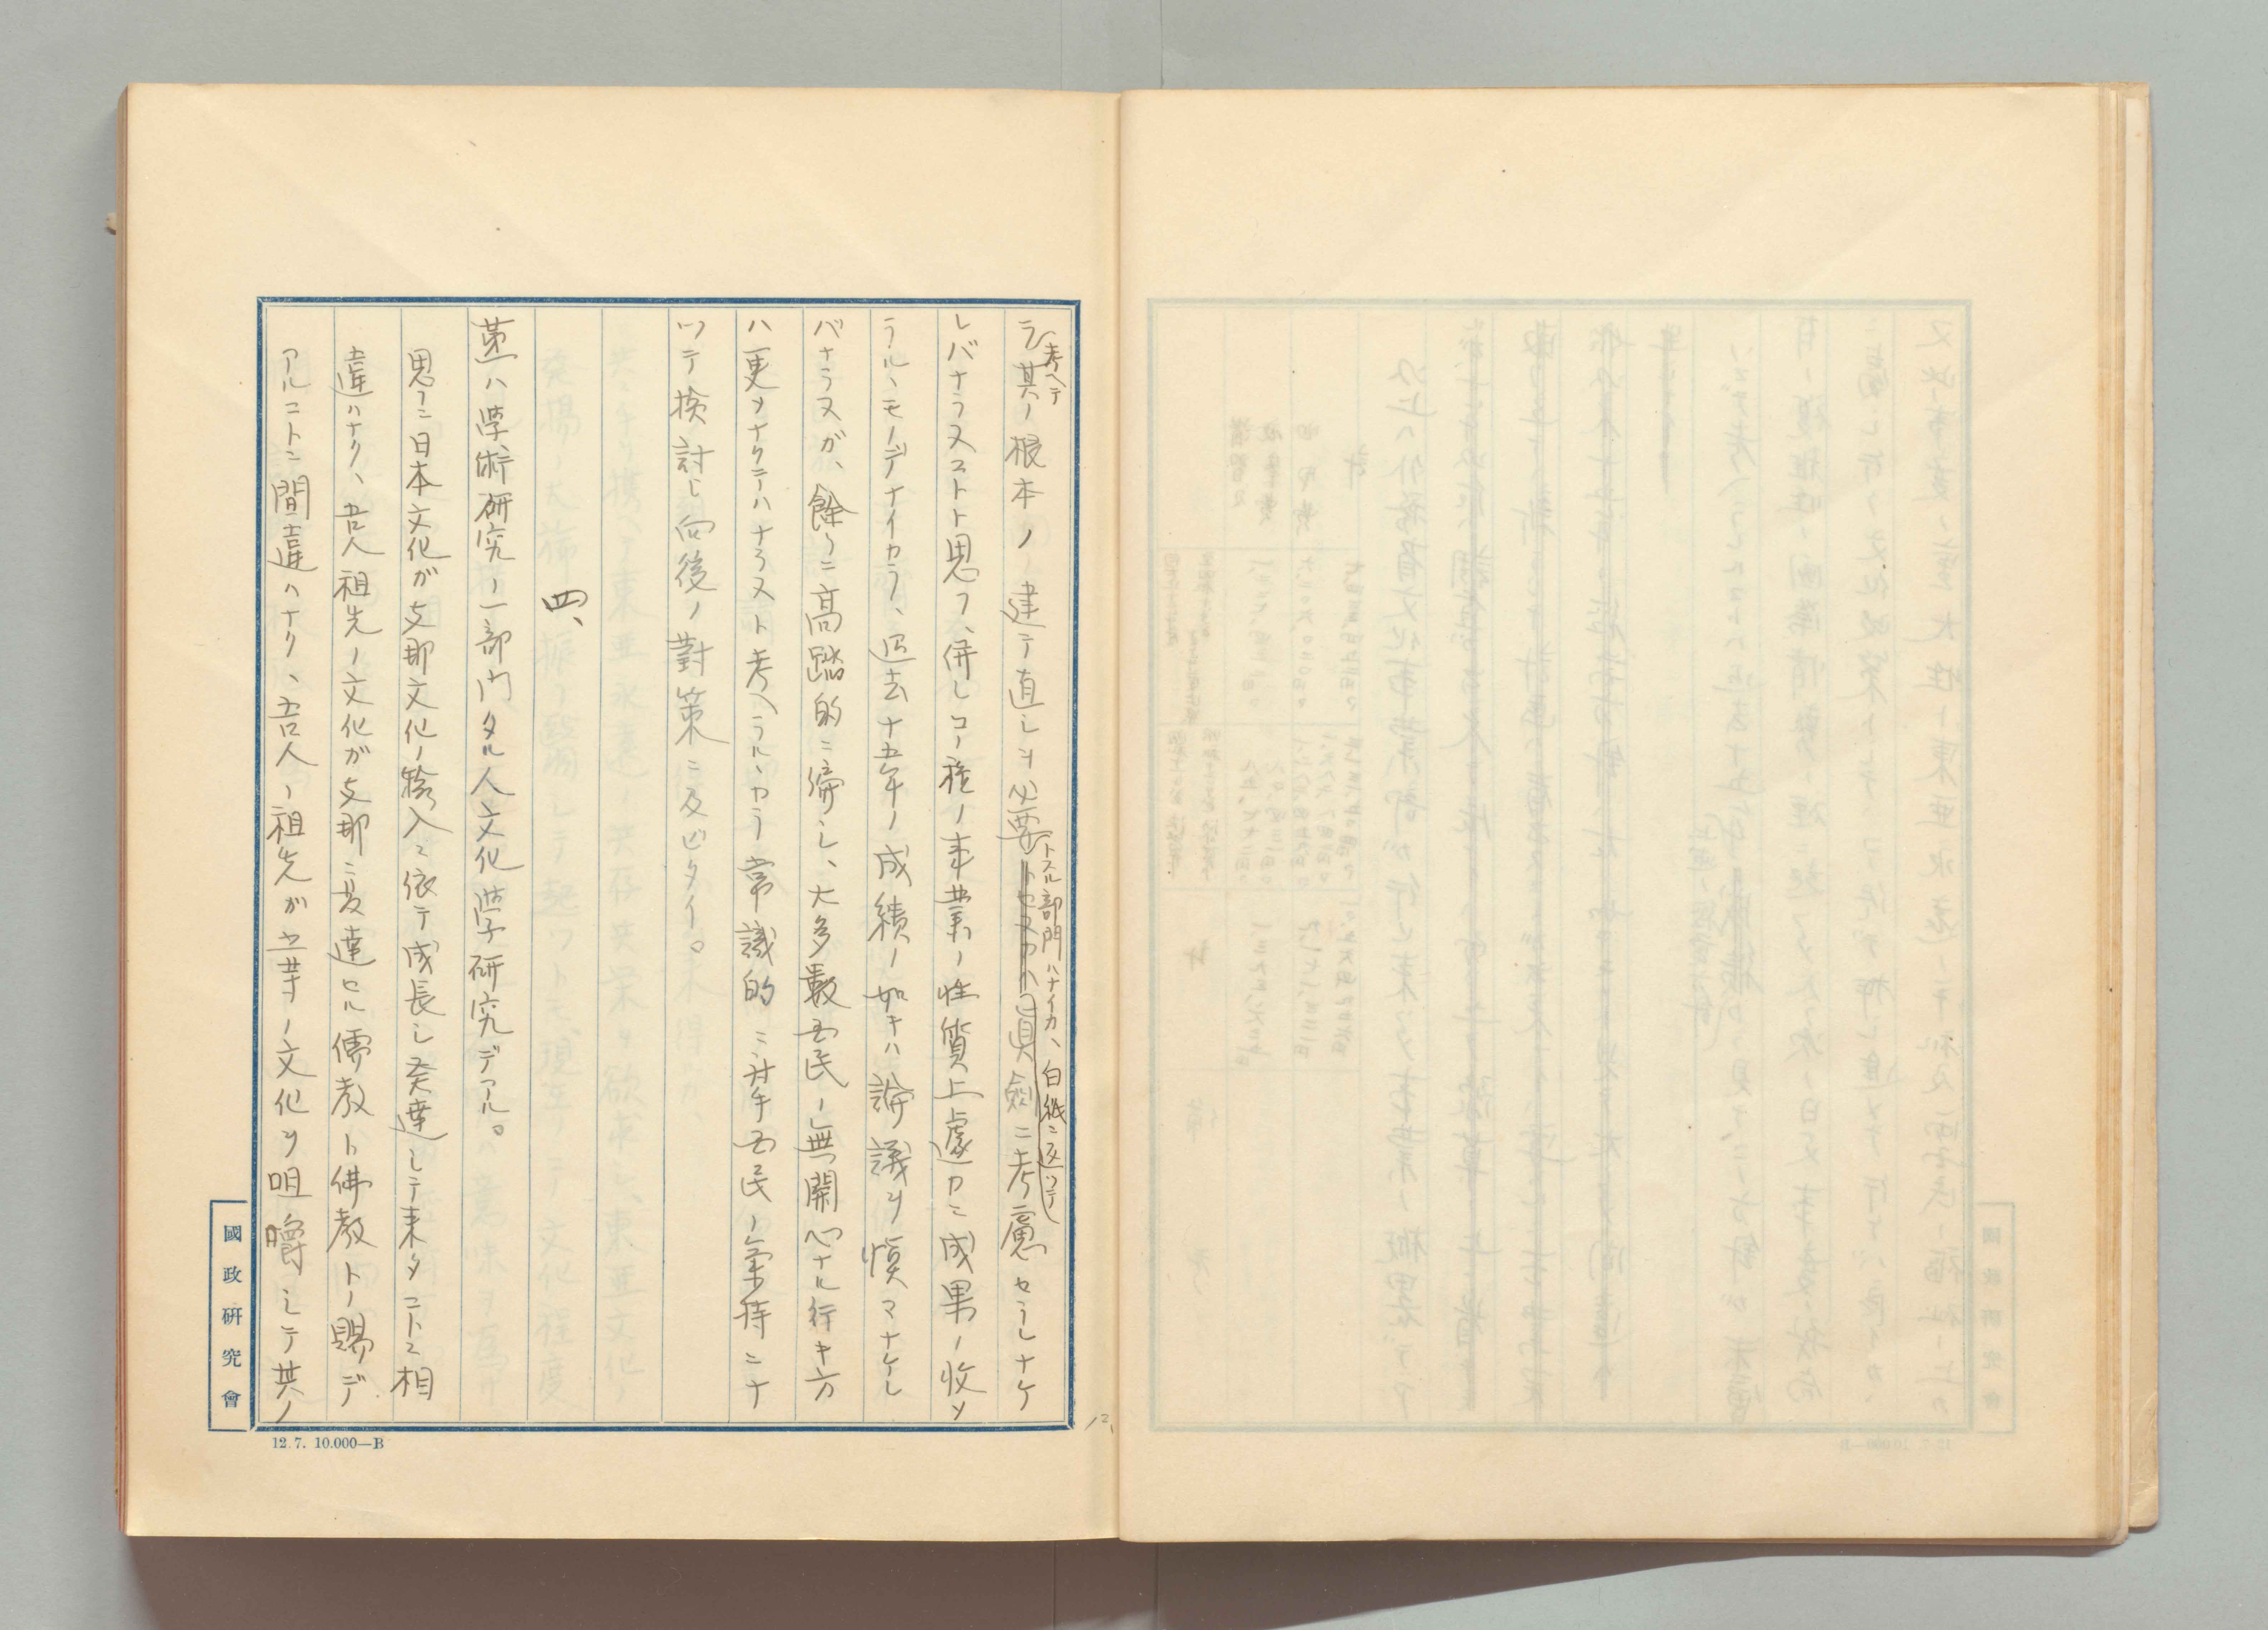 ラ考ヘテ其ノ根本ノ建テ直シヲ必要トスル部門ハナイカ、白紙ニ返ツテ眞劍ニ考慮セラレナケ
レバナラヌコトト思フ、併シコノ種ノ事業ノ性質上處カニ成果ノ收メ
ラルヽモノデナイカラ、過去十五年ノ成績ノ如キハ論議ヲ愼マナケレ
バナラヌガ、餘リニ高踏的ニ濟シ、大多數国民ノ無関心ナル行キ方
ハ更メナクテハナラヌト考ヘラルヽカラ常識的ニ對手国民ノ氣持ニナ
ツテ検討シ向後ノ對策ニ及ビタイ。
四、
第一ハ学術研究ノ一部門タル人文化学研究デアル。
思フニ日本文化ガ支那文化ノ移入ニ依テ成長シ発達シテ来タコトニ相
違ハナク、吾人祖先ノ文化ガ支那ニ発達セル儒教ト佛教トノ賜デ
アルコトニ間違ハナク、吾人ノ祖先ガ此等ノ文化ヲ咀嚼シテ其ノ
國政研究會
12.7. 10.000—B